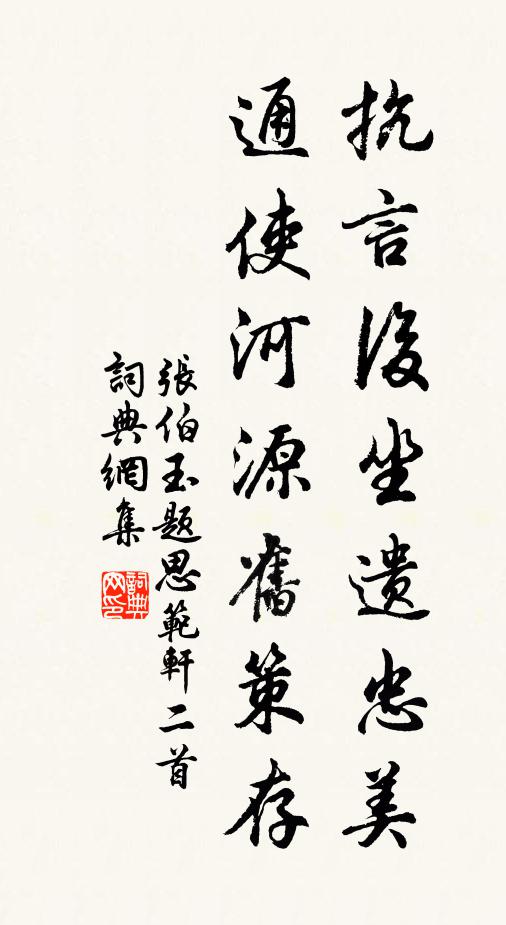 抗言後坐遺忠美
通使河源舊策存
張伯玉題思範軒二首
詞典網集
詞典网印